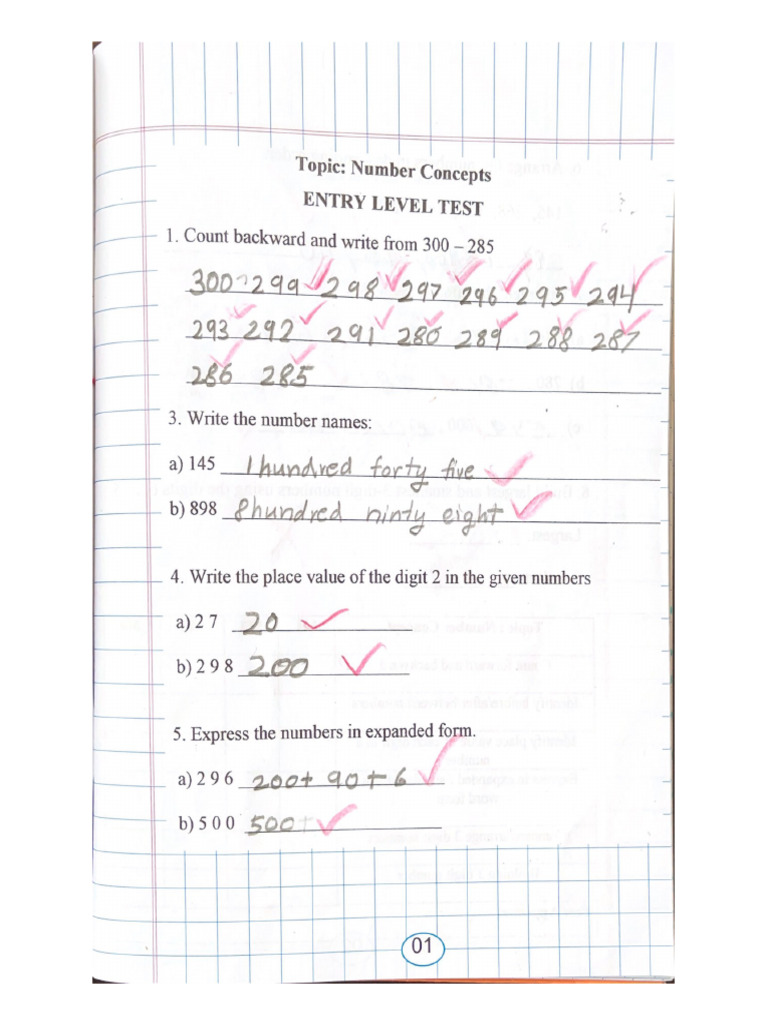 Topic: Number Concepts
ENTRY LEVEL TEST
1. Count backward and write from 300 – 285
300 299 298 297 296 295 294
293 292 291 280 289 288 287
286 285
3. Write the number names:
a) 145 1hundred forty five
b) 898 8hundred ninty eight
4. Write the place value of the digit 2 in the given numbers
a) 2 7 20
b) 2 9 8 200
5. Express the numbers in expanded form.
a) 2 9 6 200+ 90+6
b) 5 0 0 500+
01